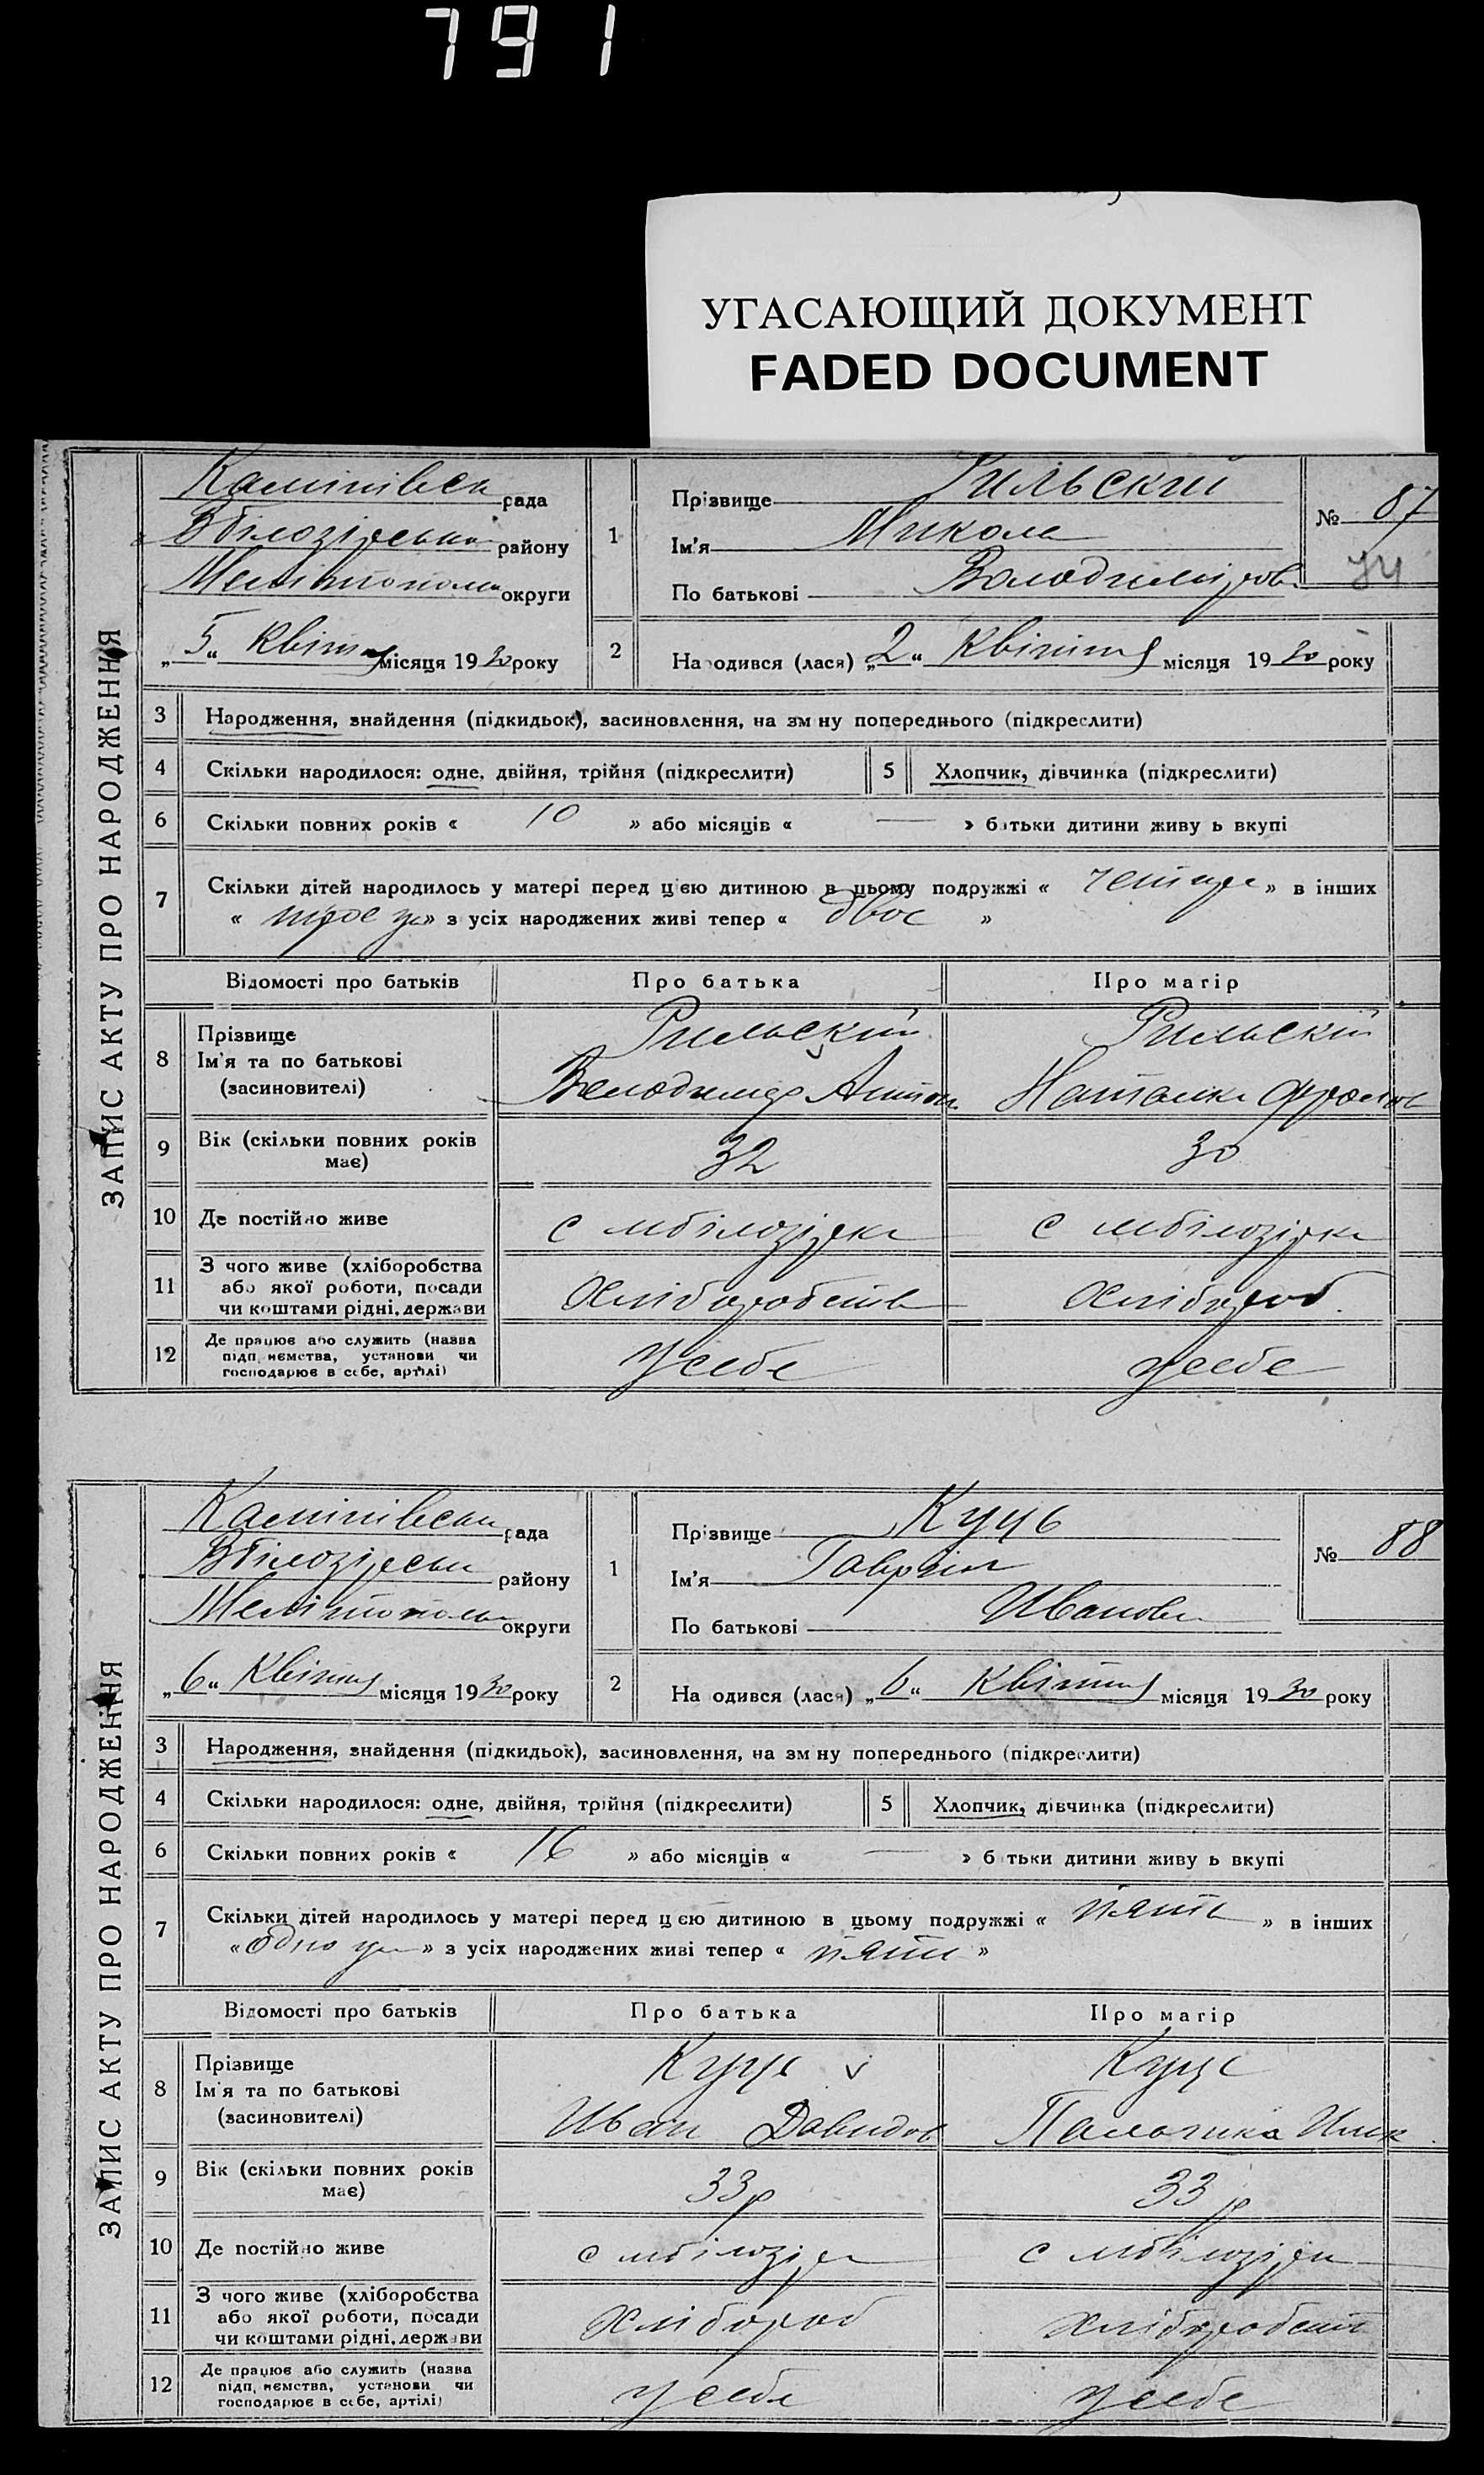 791
УГАСАЮЩИЙ ДОКУМЕНТ
FADED DOCUMENT
ЗАПИС АКТУ ПРО НАРОДЖЕННЯ
рада
району
Мелітополь округи
„5“ Квітня місяця 1930 року
1
Прізвище
Ім'я Микола
По батькові Володимиров
№ 87
74
2
На одився (лася) „2“ Квітня місяця 1930 року
3 Народження, знайдення (підкидьок), засиновлення, на зм ну попереднього (підкреслити)
4 Скільки народилося: одне, двійня, трійня (підкреслити)
5 Хлопчик, дівчинка (підкреслити)
6 Скільки повних років « 10 » або місяців « — » б тьки дитини живу ь вкупі
7 Скільки дітей народилось у матері перед ц єю дитиною в цьому подружжі « » в інших
« трое » з усіх народжених живі тепер « двое »
Відомості про батьків Про батька Про матір
8 Прізвище Рильский Рильский
Ім'я та по батькові Володимир Антон Наталка
(засновителі)
9 Вік (скільки повних років має) 32 30
10 Де постійно живе с мбілозірка с мбілозірка
11 З чого живе (хліборобства або якої роботи, посади чи коштами рідні, держави Хліборобств Хлібороб.
12 Де працює або служить (назва підп иємства, установи чи господарює в себе, артілі) у себе у себе
ЗАПИС АКТУ ПРО НАРОДЖЕННЯ
рада
району
Мелітополь округи
„6“ Квітня місяця 1930 року
1
Прізвище Куць
Ім'я Гавриил
По батькові Иванов
№ 88
2
На одився (лася) „6“ Квітня місяця 1930 року
3 Народження, знайдення (підкидьок), засиновлення, на зм ну попереднього (підкреслити)
4 Скільки народилося: одне, двійня, трійня (підкреслити)
5 Хлопчик, дівчинка (підкреслити)
6 Скільки повних років « 16 » або місяців « — » б тьки дитини живу ь вкупі
7 Скільки дітей народилось у матері перед ц єю дитиною в цьому подружжі « пять » в інших
« одно » з усіх народжених живі тепер « пять »
Відомості про батьків Про батька Про матір
8 Прізвище Куць Куць
Ім'я та по батькові Иван Давидов
(засиновителі)
9 Вік (скільки повних років має) 33 р 33 р
10 Де постійно живе
11 З чого живе (хліборобства або якої роботи, посади чи коштами рідні, держави Хлібороб хліборобств
12 Де працює або служить (назва підп иємства, установи чи господарює в себе, артілі) у себе у себе